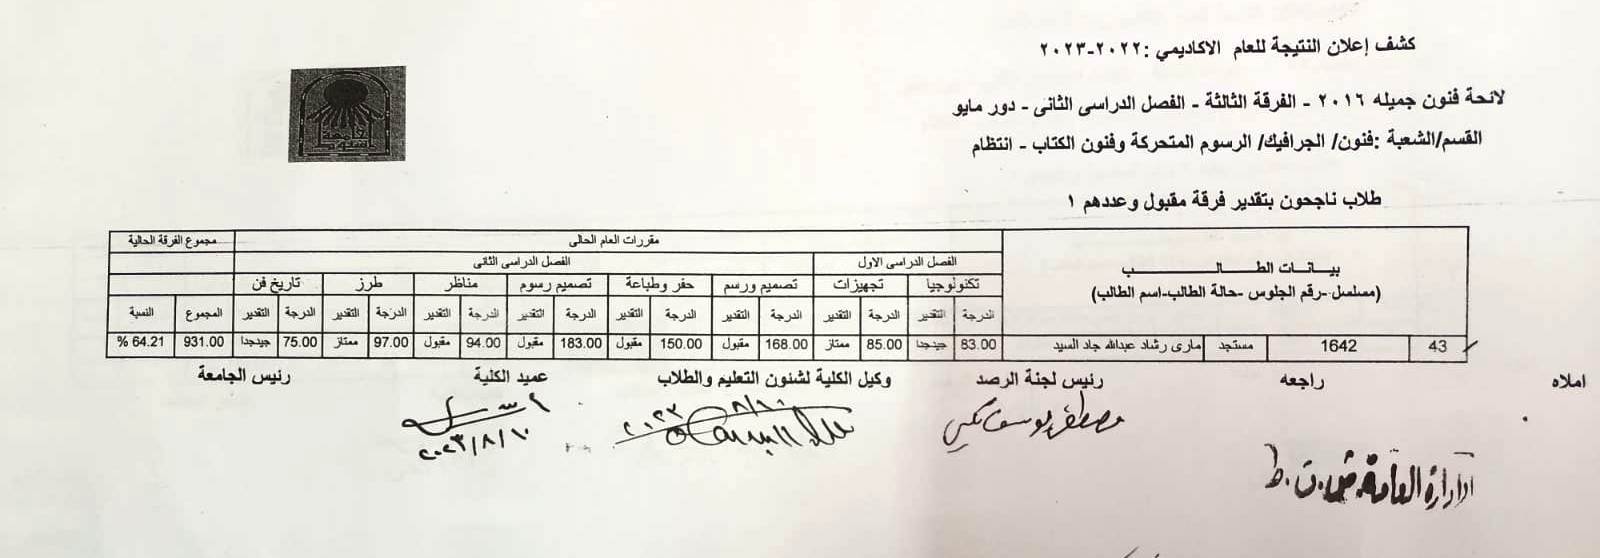 كشف إعلان النتيجة للعام الاكاديمي :٢٠٢٢-٢٠٢٣
لائحة فنون جميله ٢٠١٦ - الفرقة الثالثة - الفصل الدراسى الثانى - دور مايو
القسم/الشعبة :فنون/ الجرافيك/ الرسوم المتحركة وفنون الكتاب - انتظام
جامعة اسيوط
طلاب ناجحون بتقدير فرقة مقبول وعددهم ١
بيـــانــات الطـــــالـــــــــــــب مقررات العام الحالى مجموع الفرقة الحالية
(مسلسل -رقم الجلوس -حالة الطالب-اسم الطالب) الفصل الدراسى الاول الفصل الدراسى الثانى
تكنولوجيا تجهيزات تصميم ورسم حفر وطباعة تصميم رسوم مناظر طرز تاريخ فن
الدرجة التقدير الدرجة التقدير الدرجة التقدير الدرجة التقدير الدرجة التقدير الدرجة التقدير الدرجة التقدير الدرجة التقدير المجموع النسبة
43 1642 مستجد مارى رشاد عبدالله جاد السيد 83.00 جيدجدا 85.00 ممتاز 168.00 مقبول 150.00 مقبول 183.00 مقبول 94.00 مقبول 97.00 ممتاز 75.00 جيدجدا 931.00 64.21 %
املاه راجعه رئيس لجنة الرصد وكيل الكلية لشئون التعليم والطلاب عميد الكلية رئيس الجامعة
مصطفى يوسف
٢٠٢٣ ٨/١٠
٢٠٢٣/٨/١٠
ادارة العامة ش.ت.ط